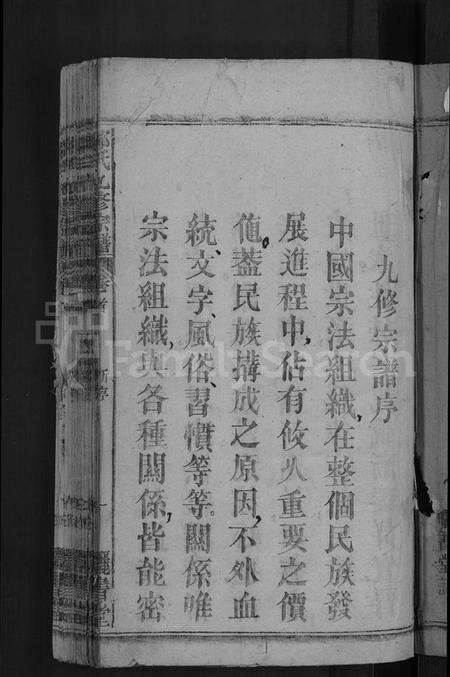 九修宗譜序
中國宗法組織、在整個民族發
展進程中、佔有攸久重要之價
値、蓋民族搆成之原因、不外血
統、文字、風俗、習慣等等關係、唯
宗法組織、與各種關係、皆能密
氏九修宗譜
新序
一
FamilySearch